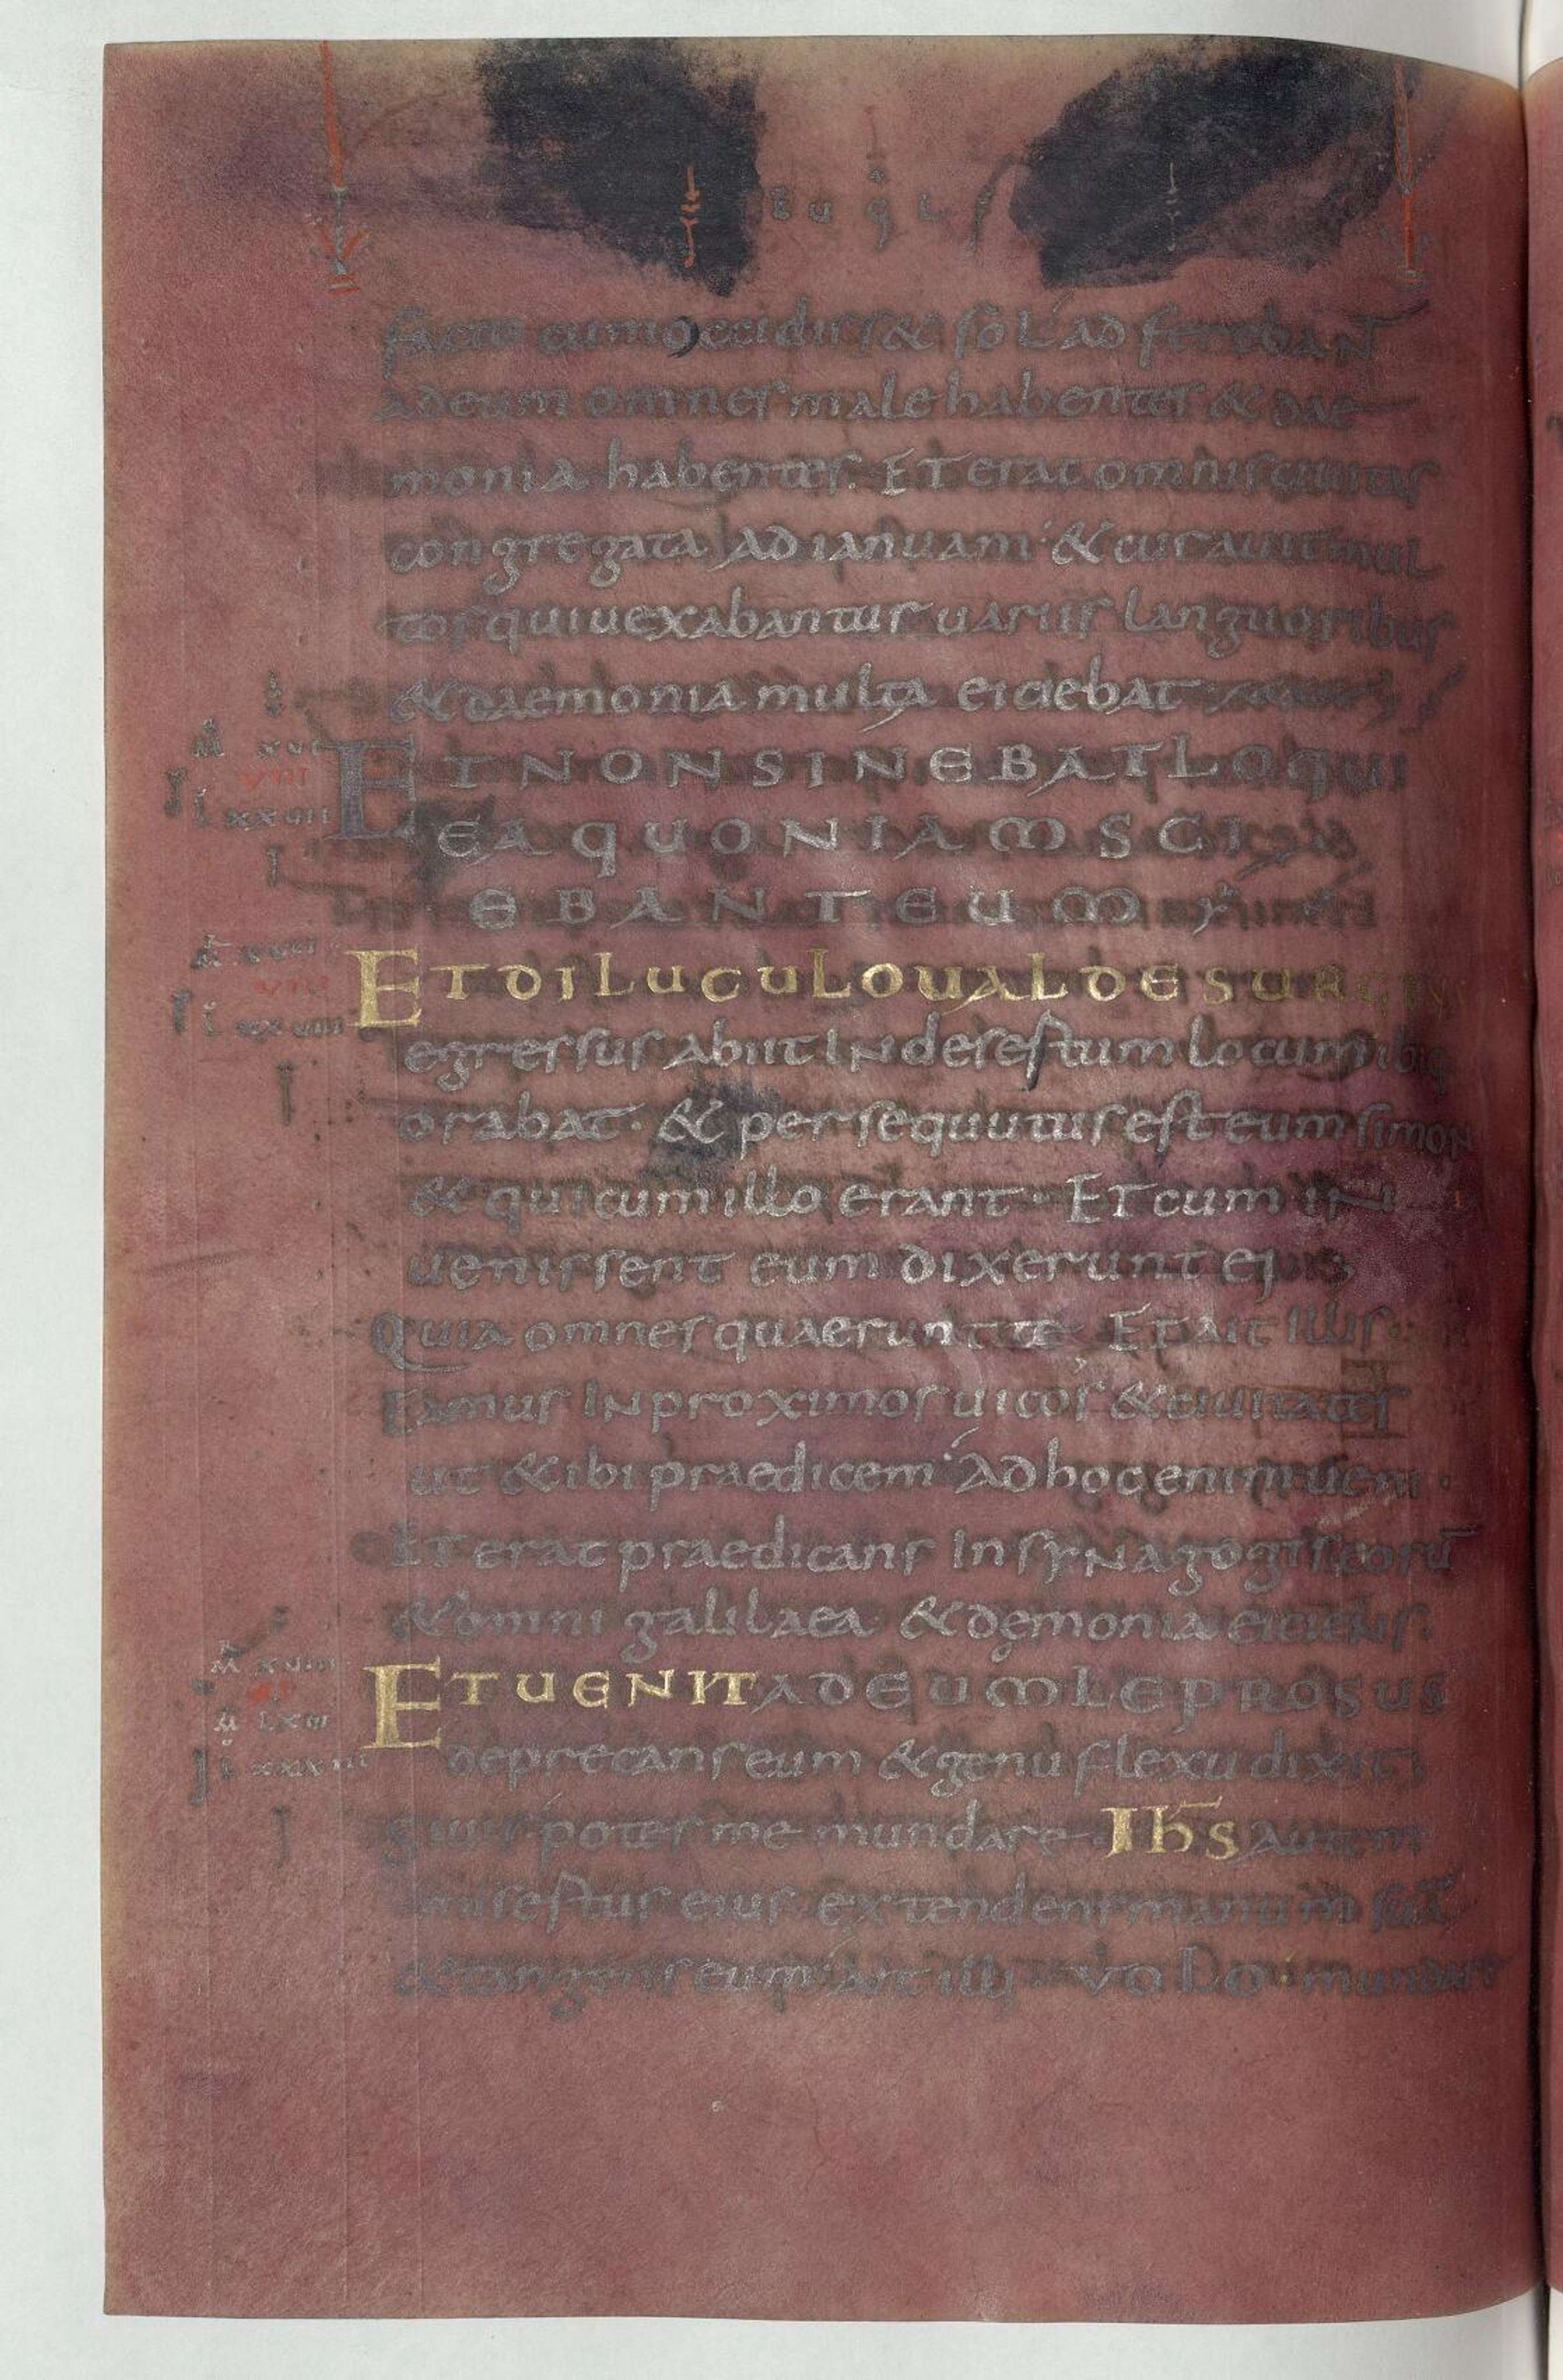 EUGL
facto cum occidiss& sol adferebant̄
ad eum omnes male habentes & dae
monia habentes. Et erat omnis ciuitas
congregata ad ianuam · & curauit mul
tos qui uexabantur uariis languoribus
& daemonia multa eiciebat
M XVI
VIII
L XXVII
ET NON SINEBAT LOQUI
EA QUONIAM SCI
EBANT EUM
VIIII
L XXVIII
ET DILUCULO UALDE SURGENS
egressus abiit in desertum locum ibiq
orabat · & persequutus est eum simon
& qui cum illo erant · Et cum in
uenissent eum dixerunt ei
Quia omnes quaerunt te Et ait illis
Eamus in proximos uicos & ciuitates
ut & ibi praedicem · Ad hoc enim ueni ·
Et erat praedicans in synagogis eorū
& omni galilaea & demonia eiciens.
M XVIII
LXIII
L XXXIII
ET UENIT AD EUM LEPROSUS
deprecans eum & genu flexu dixit
potes me mundare · Ih̄s autem
misertus eius extendens manum suā
& tangens eum ait illi volo · mundare